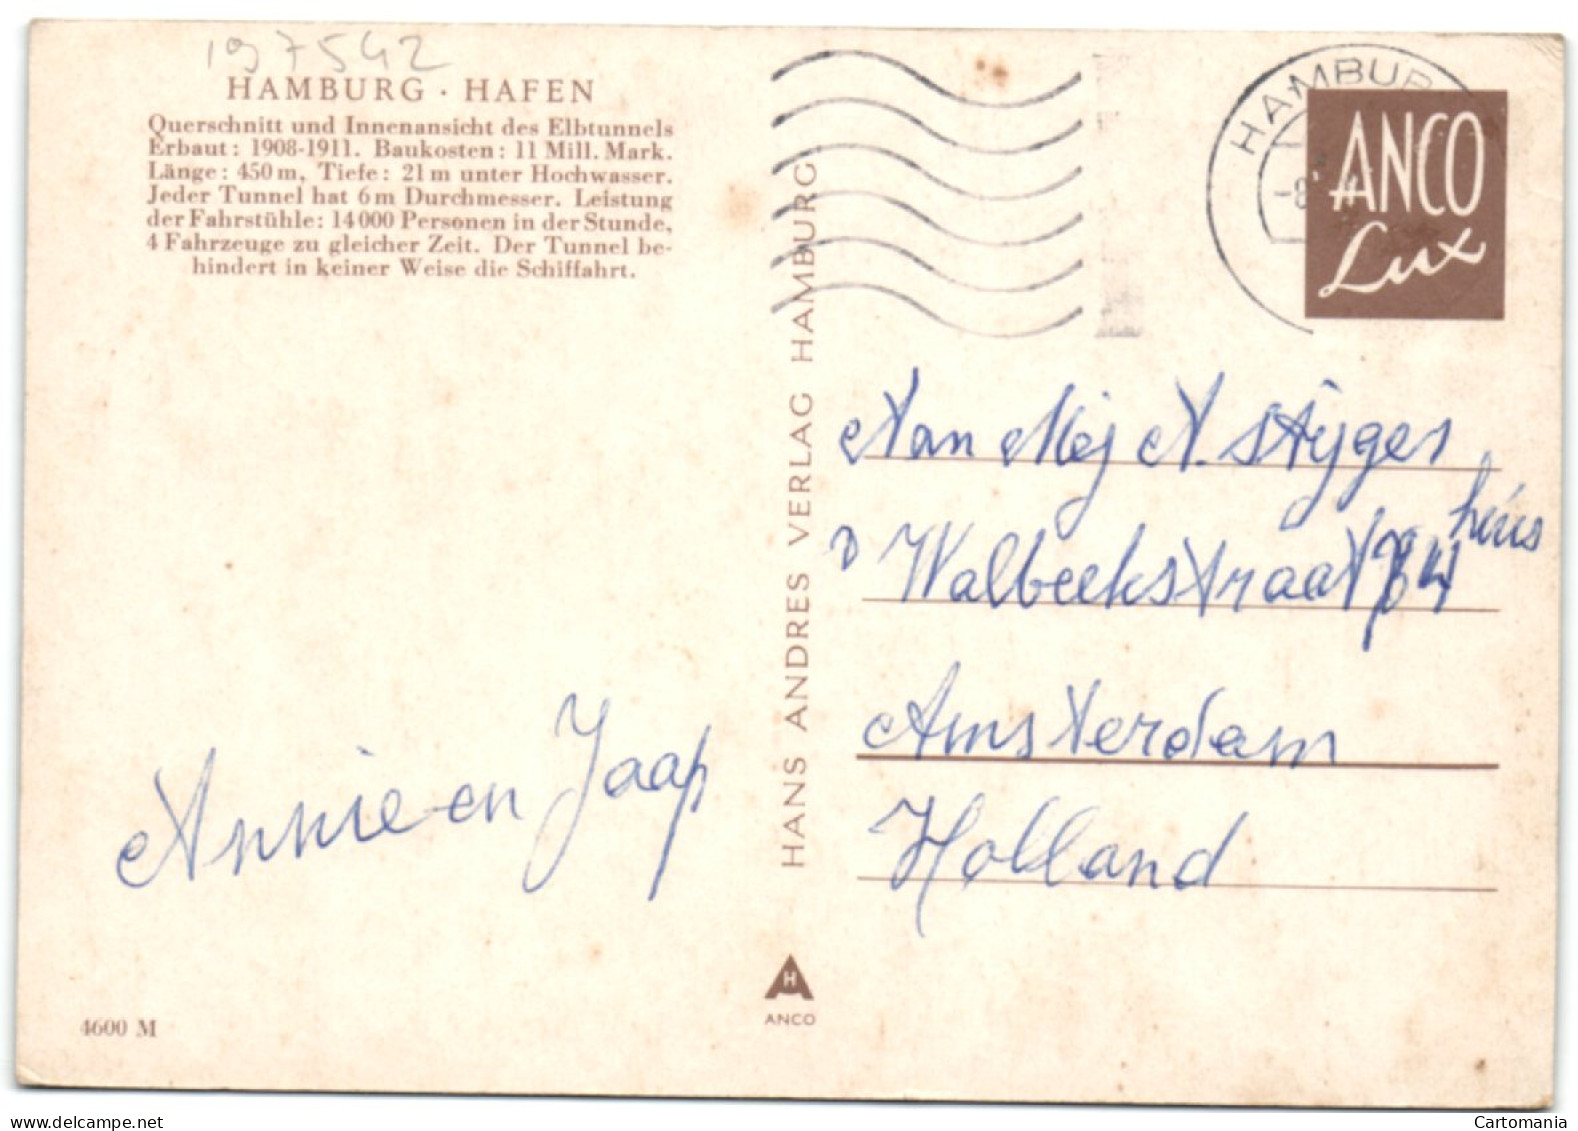 197542
HAMBURG · HAFEN
Querschnitt und Innenansicht des Elbtunnels
Erbaut: 1908-1911. Baukosten: 11 Mill. Mark.
Länge: 450 m, Tiefe: 21 m unter Hochwasser.
Jeder Tunnel hat 6 m Durchmesser. Leistung
der Fahrstühle: 14 000 Personen in der Stunde,
4 Fahrzeuge zu gleicher Zeit. Der Tunnel be-
hindert in keiner Weise die Schiffahrt.
Annie en Jaap
4600 M
HANS ANDRES VERLAG HAMBURG
H
ANCO
HAMBUR
-8
ANCO
Lux
Aan Mej A. Stijger
Walbeekstraat 84 huis
Amsterdam
Holland
delcampe.net
Cartomania